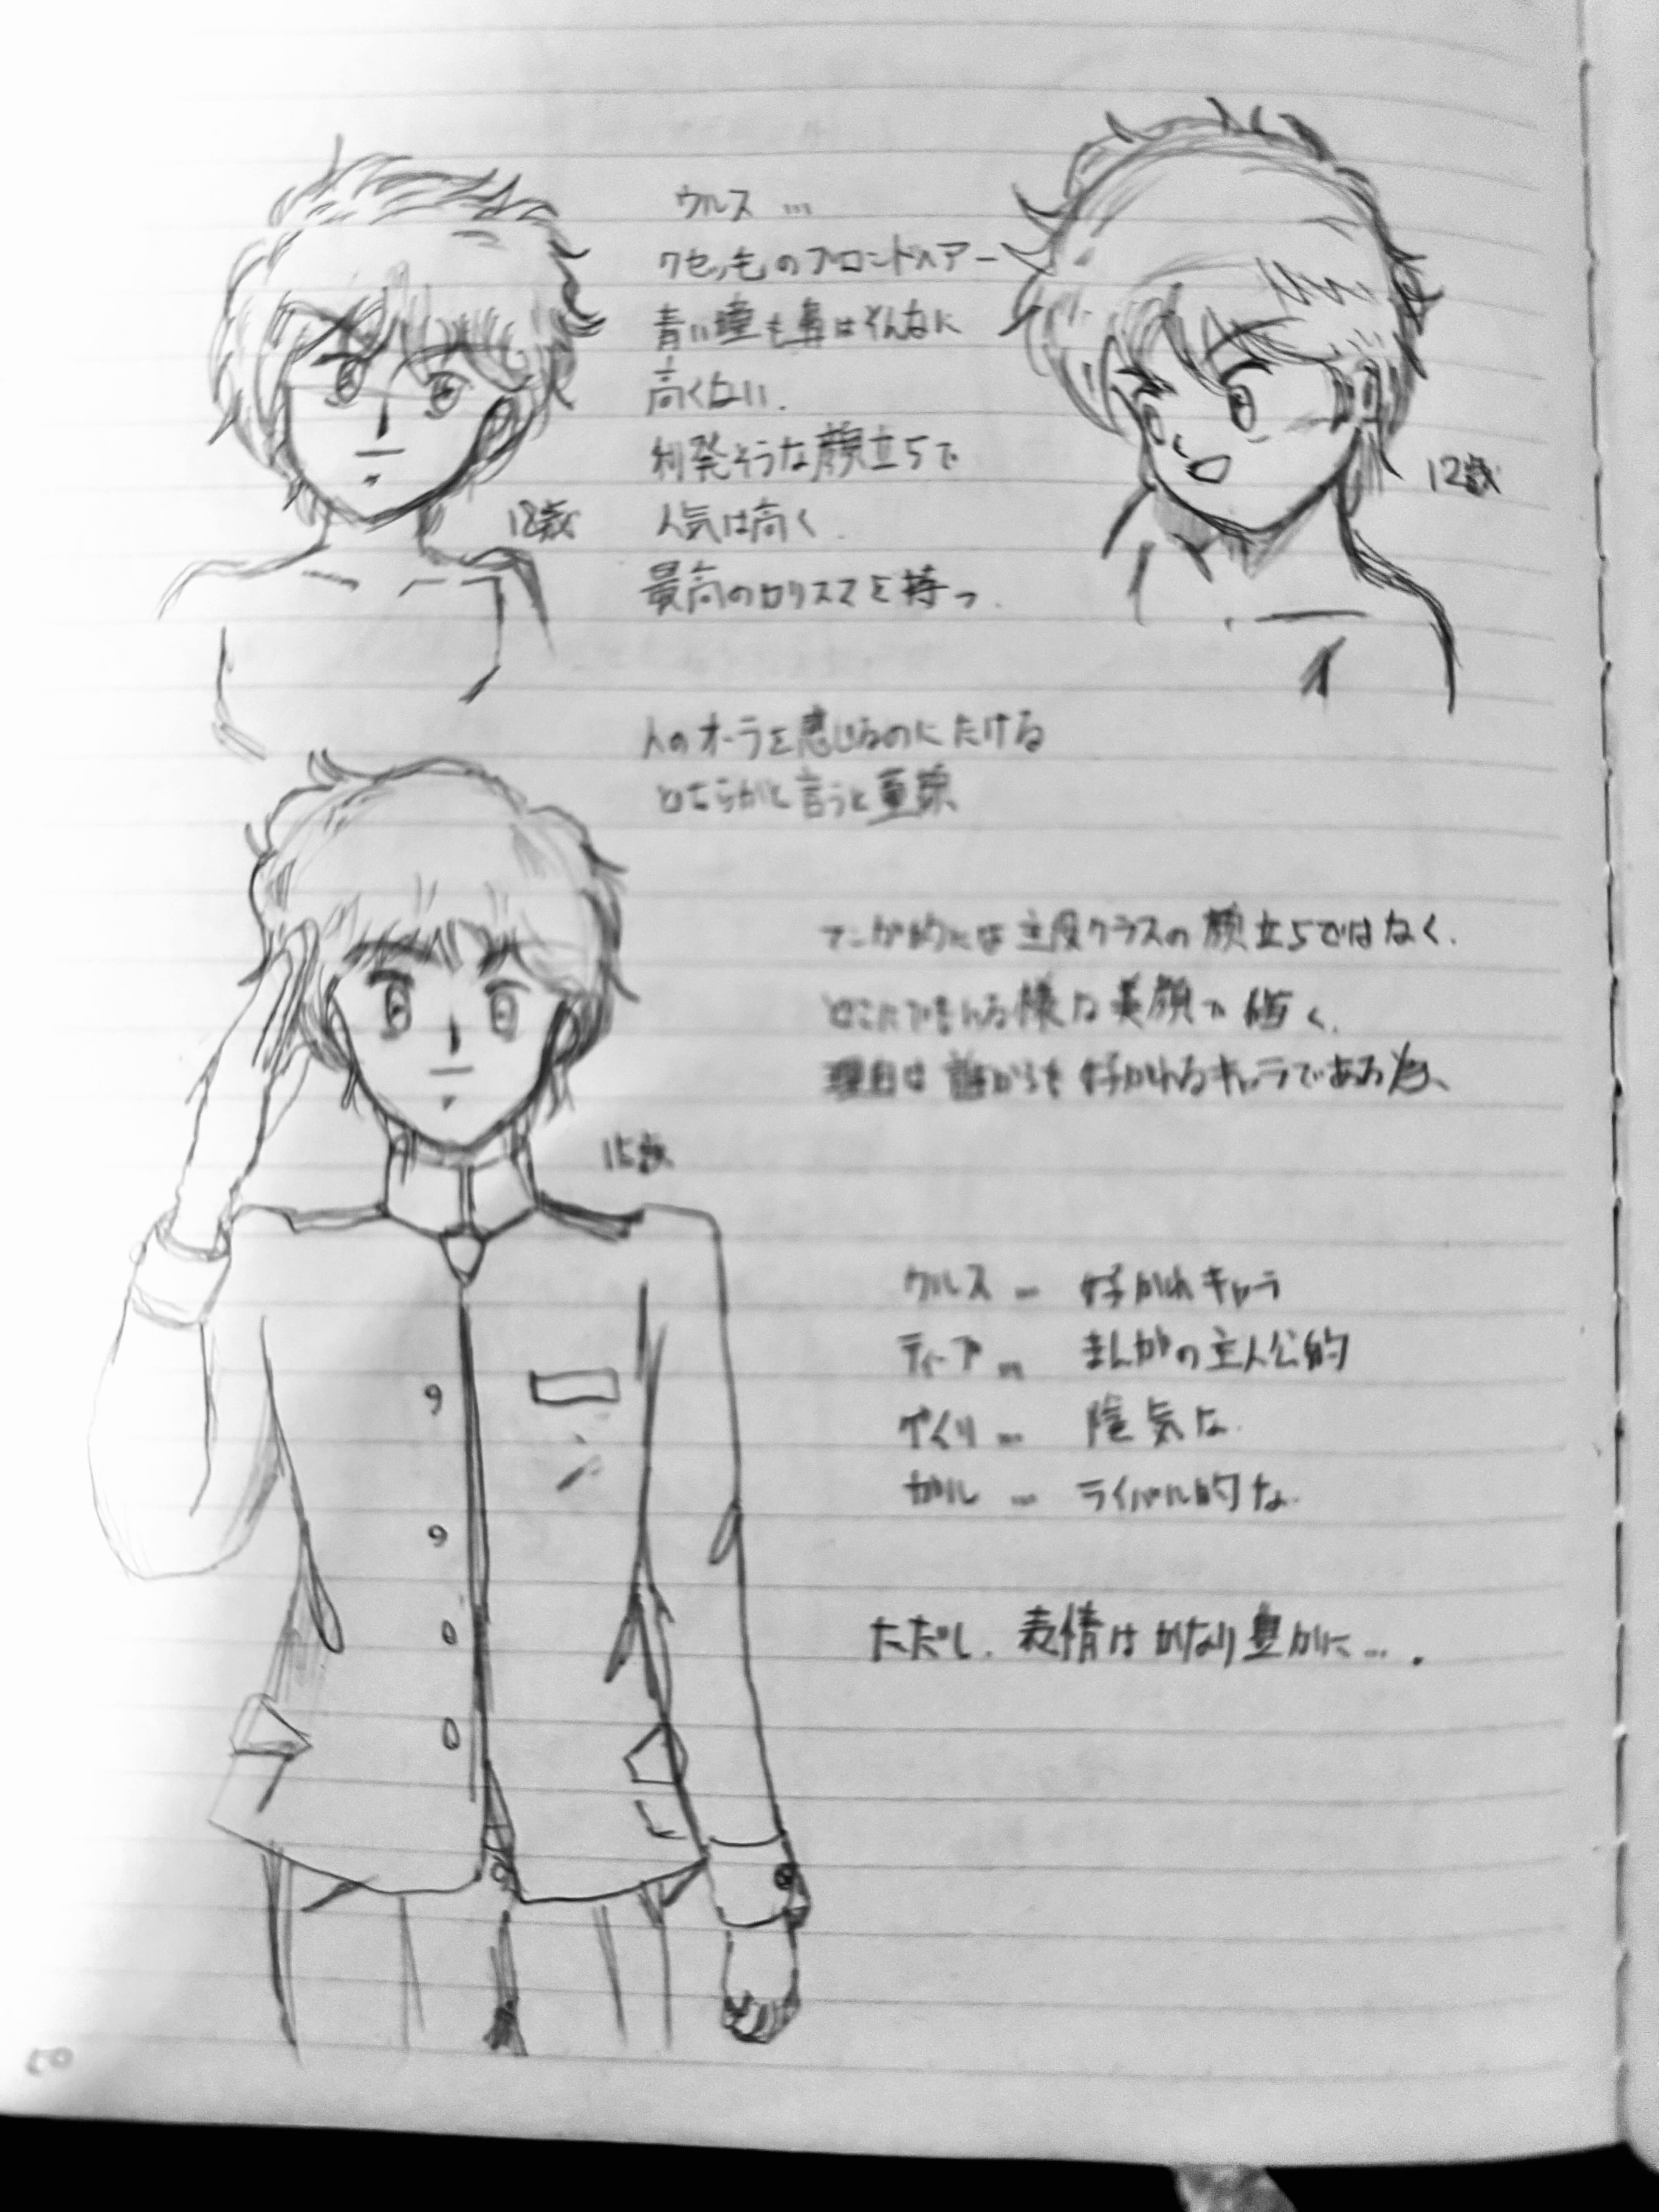 ウルス …
クセッ毛のブロンドヘアー
青い瞳も鼻はそんなに
高くない.
利発そうな顔立ちで
12歳
人気は高く.
最高のカリスマを持つ.
12歳
人のオーラを感じるのにたける
どちらかと言うと童顔
マンガ的には主役クラスの顔立ちではなく.
どこにでもいる様な 顔で描く.
理由は誰からも好かれるキャラである為、
15歳
ウルス … 好かれキャラ
ティーア … まんがの主人公的
… 陰気な
ガル … ライバル的な
ただし、表情はかなり豊かに….
50